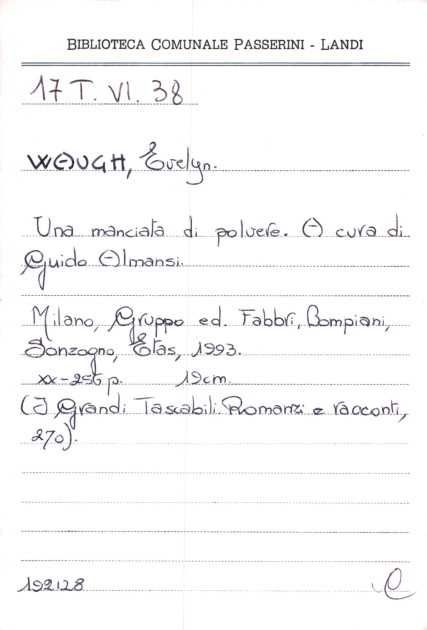 BIBLIOTECA COMUNALE PASSERINI - LANDI
17 T. VI. 38
WAUGH, Evelyn.
Una manciata di polvere. A cura di
Guido Almansi.
Milano, Gruppo ed. Fabbri, Bompiani,
Sonzogno, Etas, 1993.
xx-256 p. 19cm.
(I Grandi Tascabili. Romanzi e racconti,
270).
192128